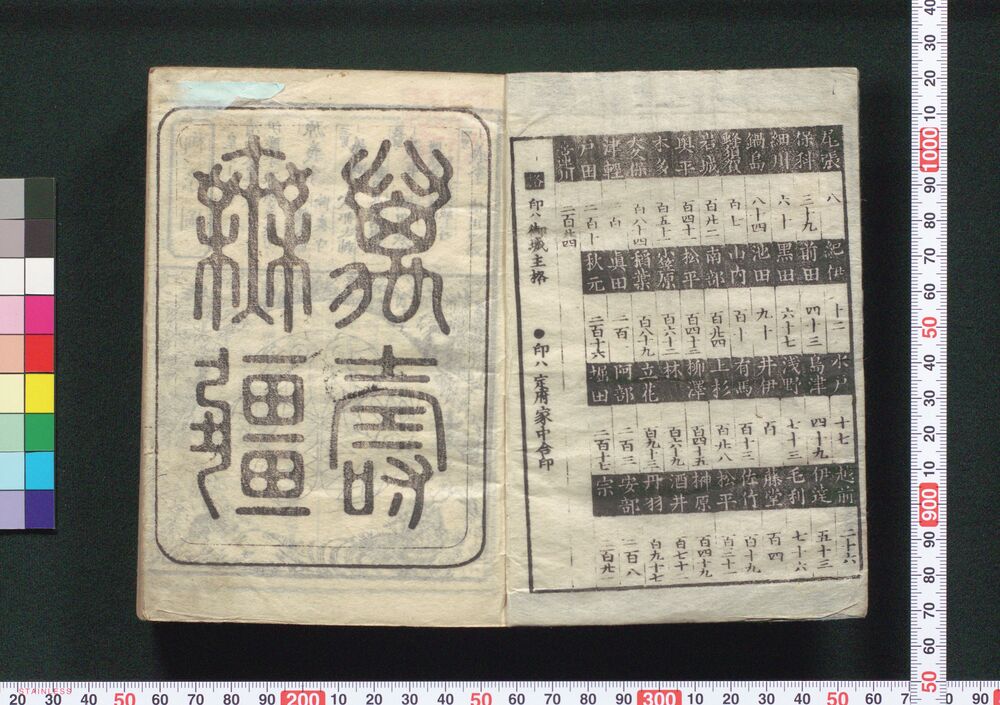 尾張 八
保科 三十九
細川 六十
鍋島 八十四
蜂須賀 百七
岩城 百廿二
奥平 百四十
本多 百五十一
大久保 百八十四
津軽 二百
戸田 二百十
堂川 二百廿四
紀伊 十二
前田 四十三
黒田 六十七
池田 九十
山内 百十
南部 百廿四
松平 百四十三
榊原 百六十三
稲葉 百八十九
真田 二百
秋元 二百十六
水戸 十七
島津 四十九
浅野 七十三
井伊 百
有馬 百十三
上杉 百廿八
柳澤 百四十五
林 百六十九
立花 百九十三
阿部 二百三
堀田 二百十七
越前 二十六
伊達 五十三
毛利 七十六
藤堂 百四
佐竹 百十九
松平 百三十一
榊原 百四十九
酒井 百七十一
丹羽 百九十七
安部 二百八
宗 二百廿一
印ハ御城主格 ●印ハ定府家中合印
萬壽
無疆